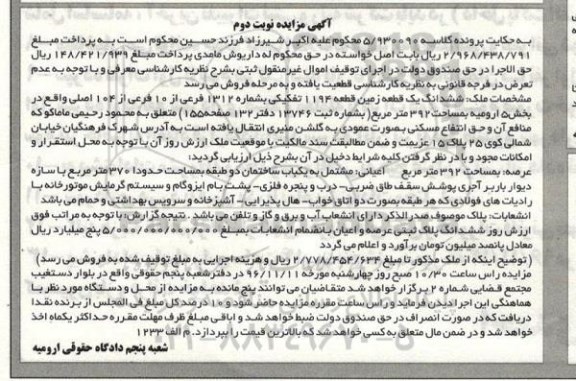 آگهی مزایده نوبت دوم
به حکایت پرونده کلاسه ۵/۹۳۰۰۹۰ محکوم علیه اکبر شیرزاد فرزند حسین محکوم است به پرداخت مبلغ
۲/۹۶۸/۴۳۸/۷۹۱ ریال بابت اصل خواسته در حق محکوم له داریوش مامدی پرداخت مبلغ ۱۴۸/۴۲۱/۹۳۹ ریال
حق الاجرا در حق صندوق دولت در اجرای توقیف اموال غیرمنقول ثبتی بشرح نظریه کارشناسی معرفی و با توجه به عدم
تعرض در فرجه قانونی به نظریه کارشناسی قطعیت یافته و به مرحله فروش می رسد
مشخصات ملک: ششدانگ یک قطعه زمین قطعه ۱۱۹۴ تفکیکی بشماره ۱۳۱۲ فرعی از ۱۰ فرعی از ۱۰۴ اصلی واقع در
بخش۵ ارومیه بمساحت ۳۹۲ متر مربع( بشماره ثبت ۱۳۷۴۶ دفتر ۱۳۲ صفحه۱۵۵) متعلق به محمود رحیمی ماماکو که
منافع آن و حق انتفاع مسکنی بصورت عمودی به گلشن منیری انتقال یافته است به آدرس شهرک فرهنگیان خیابان
شمالی کوی ۲۵ پلاک ۱۵ عزیمت و ضمن مطالبقت سند مالکیت با موقعیت ملک ارزش روز آن با توجه به محل استقرار و
امکانات موجود و با در نظر گرفتن کلیه شرایط دخیل در آن بشرح ذیل ارزیابی گردید:
عرصه: بمساحت ۳۹۲ متر مربع اعیانی: مشتمل به یکباب ساختمان دو طبقه بمساحت حدودا ۳۷۰ متر مربع با سازه
دیوار باربر آجری پوشش سقف طاق ضربی- درب و پنجره فلزی- پشت بام ایزوگام و سیستم گرمایش موتورخانه با
رادیات های فولادی که هر طبقه بصورت دو اتاق خواب- هال پذیرایی- آشپزخانه و سرویس بهداشتی و حمام می باشد
انشعابات: پلاک موصوف صدرالذکر دارای انشعاب آب و برق و گاز و تلفن می باشد . نتیجه گزارش: با توجه به مراتب فوق
ارزش روز ششدانگ پلاک ثبتی عرصه و اعیان بانضمام انشعابات بمبلغ ۵/۰۰۰/۰۰۰/۰۰۰ پنج میلیارد ریال
معادل پانصد میلیون تومان برآورد و اعلام می گردد
(توضیح اینکه از ملک مذکور تا مبلغ ۲/۷۷۸/۴۵۴/۶۳۴ ریال و هزینه اجرایی به مبلغ توقیف شده به فروش می رسد)
مزایده راس ساعت ۱۰/۳۰ صبح روز چهارشنبه مورخه ۹۶/۱۱/۱۱ در دفتر شعبه پنجم حقوقی واقع در بلوار دستغیب
مجتمع قضایی شماره ۲ برگزار خواهد شد متقاضیان می توانند پنج مانده به مزایده از محل و دستگاه مورد نظر با
هماهنگی این اجرا دیدن فرماید و راس ساعت مقرره مزایده حاضر شود و ۱۰ درصد کل مبلغ فی المجلس از برنده نقدا
دریافت که در صورت انصراف در حق صندوق دولت ضبط خواهد شد و اباقی مبلغ ظرف مهلت مقرره حداکثر یکماه اخذ
خواهد شد و در ضمن مال متعلق به کسی خواهد شد که بالاترین قیمت را بپردازد. م الف ۱۲۳۳
شعبه پنجم دادگاه حقوقی ارومیه